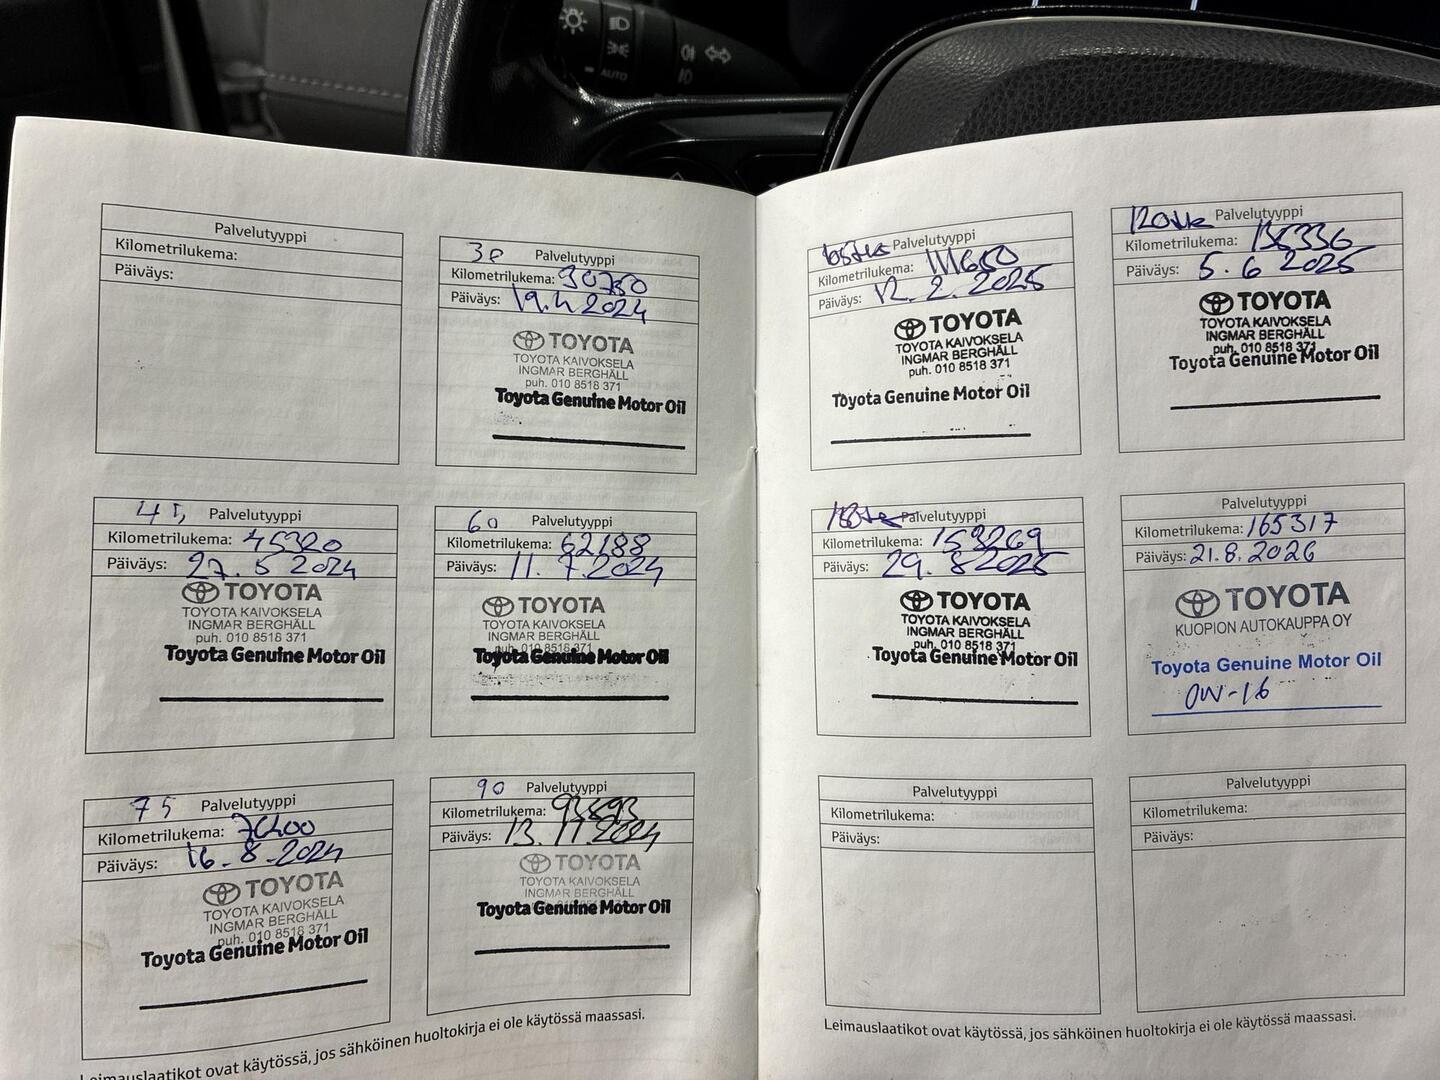 AUTO
Palvelutyyppi
Kilometrilukema:
Päiväys:
30 Palvelutyyppi
Kilometrilukema: 30780
Päiväys: 19.4 2024
TOYOTA
TOYOTA KAIVOKSELA
INGMAR BERGHÄLL
puh. 010 8518 371
Toyota Genuine Motor Oil
45 Palvelutyyppi
Kilometrilukema: 45320
Päiväys: 27.5 2024
TOYOTA
TOYOTA KAIVOKSELA
INGMAR BERGHÄLL
puh. 010 8518 371
Toyota Genuine Motor Oil
60 Palvelutyyppi
Kilometrilukema: 62188
Päiväys: 11.7.2024
TOYOTA
TOYOTA KAIVOKSELA
INGMAR BERGHÄLL
puh. 010 8518 371
Toyota Genuine Motor Oil
75 Palvelutyyppi
Kilometrilukema: 76400
Päiväys: 16.8.2024
TOYOTA
TOYOTA KAIVOKSELA
INGMAR BERGHÄLL
puh. 010 8518 371
Toyota Genuine Motor Oil
90 Palvelutyyppi
Kilometrilukema: 93593
Päiväys: 13.11.2024
TOYOTA
TOYOTA KAIVOKSELA
INGMAR BERGHÄLL
Toyota Genuine Motor Oil
Leimauslaatikot ovat käytössä, jos sähköinen huoltokirja ei ole käytössä maassasi.
Palvelutyyppi
Kilometrilukema: 111650
Päiväys: 12.2.2025
TOYOTA
TOYOTA KAIVOKSELA
INGMAR BERGHÄLL
puh. 010 8518 371
Toyota Genuine Motor Oil
Palvelutyyppi
Kilometrilukema: 135336
Päiväys: 5.6 2025
TOYOTA
TOYOTA KAIVOKSELA
INGMAR BERGHÄLL
puh. 010 8518 371
Toyota Genuine Motor Oil
Palvelutyyppi
Kilometrilukema: 153269
Päiväys: 29.8 2025
TOYOTA
TOYOTA KAIVOKSELA
INGMAR BERGHÄLL
puh. 010 8518 371
Toyota Genuine Motor Oil
Palvelutyyppi
Kilometrilukema: 165317
Päiväys: 21.8.2026
TOYOTA
KUOPION AUTOKAUPPA OY
Toyota Genuine Motor Oil
0W-16
Palvelutyyppi
Kilometrilukema:
Päiväys:
Palvelutyyppi
Kilometrilukema:
Päiväys:
Leimauslaatikot ovat käytössä, jos sähköinen huoltokirja ei ole käytössä maassasi.